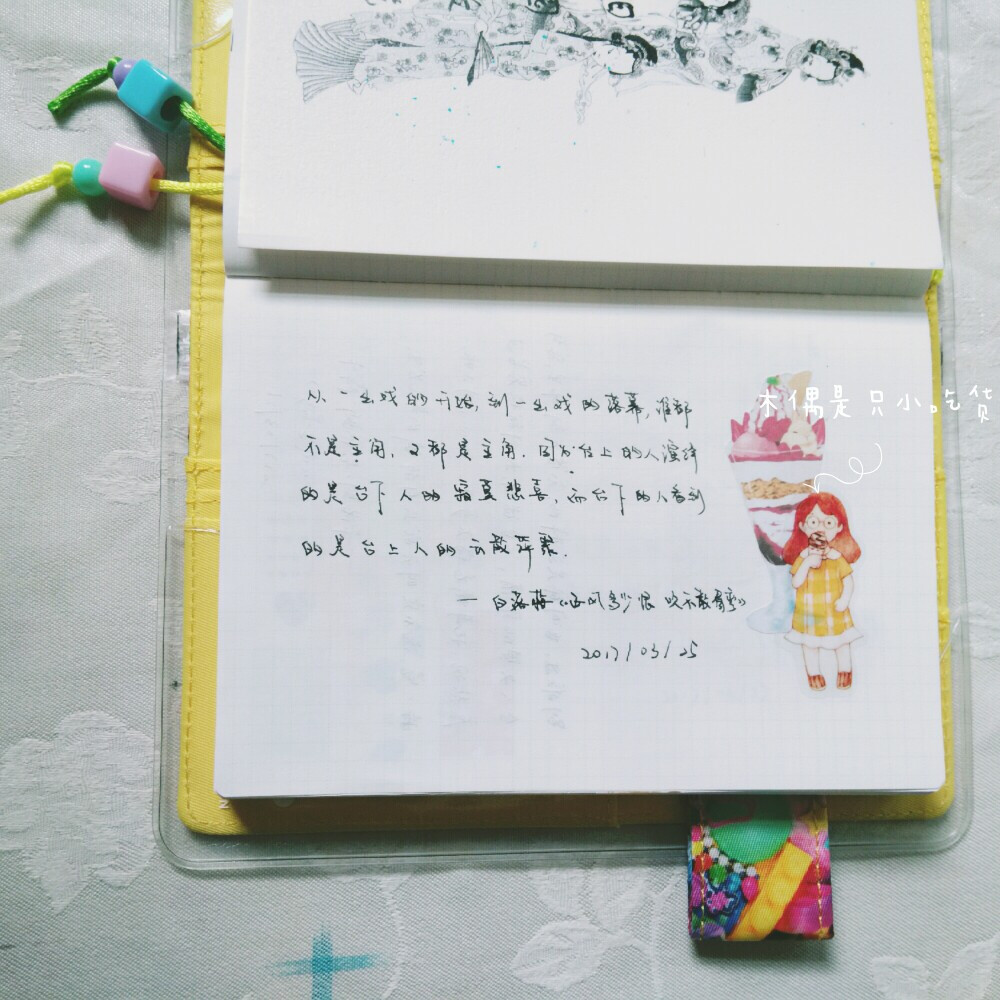 从一出戏的开始,到一出戏的落幕,谁都
不是主角,又都是主角.因为台上的人演绎
的是台下人的霜夏悲喜,而台下的人看到
的是台上人的云散萍聚.
— 白落梅《西风多少恨 吹不散眉弯》
2017/03/25
木偶是只小吃货